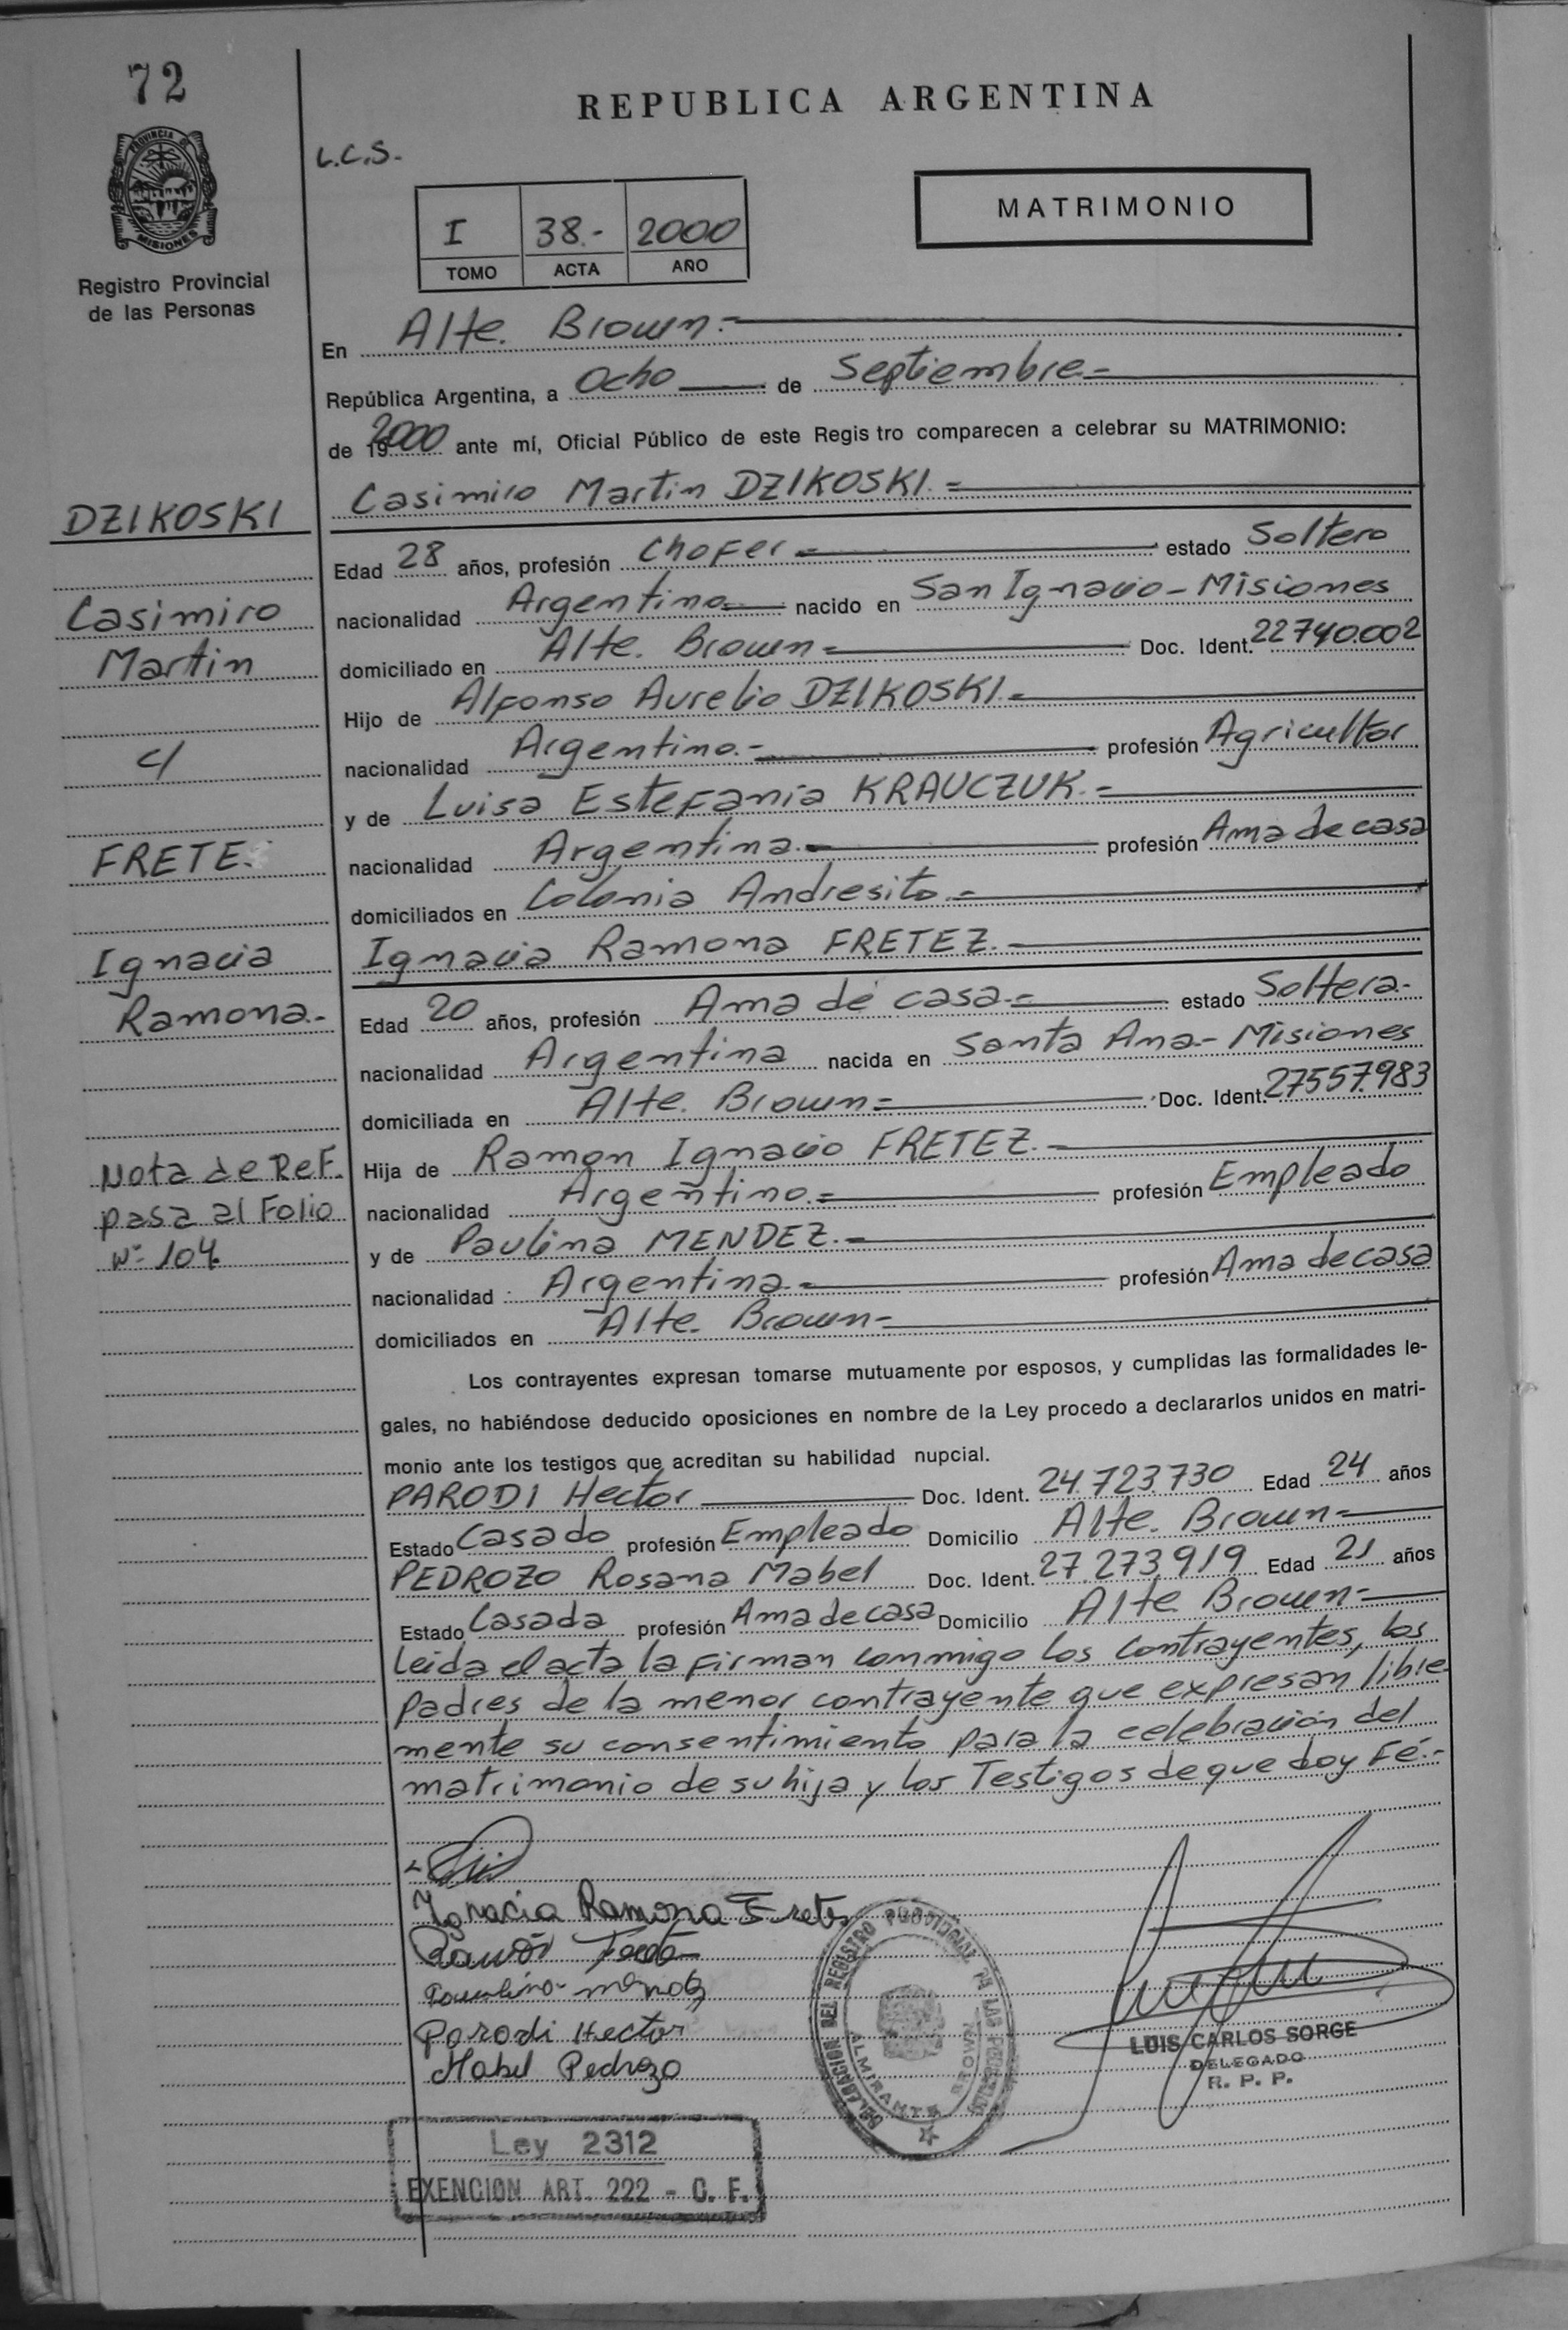 72
PROVINCIA DE
MISIONES
Registro Provincial
de las Personas
REPUBLICA ARGENTINA
L.C.S.
I 38.- 2000
TOMO ACTA AÑO
MATRIMONIO
En Alte. Brown.=
República Argentina, a Ocho de Septiembre.=
de 2000 ante mí, Oficial Público de este Regis tro comparecen a celebrar su MATRIMONIO:
Casimiro Martin DZIKOSKI.=
Edad 28 años, profesión Chofer.= estado Soltero
nacionalidad Argentino nacido en San Ignacio - Misiones
domiciliado en Alte. Brown= Doc. Ident. 22740.002
Hijo de Alfonso Aurelio DZIKOSKI.=
nacionalidad Argentino.- profesión Agricultor
y de Luisa Estefania KRAUCZUK.=
nacionalidad Argentina.- profesión Ama de casa
domiciliados en Colonia Andresito.=
Ignacia Ramona FRETEZ.=
Edad 20 años, profesión Ama de casa.= estado Soltera.-
nacionalidad Argentina nacida en Santa Ana.- Misiones
domiciliada en Alte. Brown= Doc. Ident. 27557.983
Hija de Ramon Ignacio FRETEZ.=
nacionalidad Argentino.= profesión Empleado
y de Paulina MENDEZ.=
nacionalidad Argentina.= profesión Ama de casa
domiciliados en Alte. Brown=
Los contrayentes expresan tomarse mutuamente por esposos, y cumplidas las formalidades le-
gales, no habiéndose deducido oposiciones en nombre de la Ley procedo a declararlos unidos en matri-
monio ante los testigos que acreditan su habilidad nupcial.
PARODI Hector Doc. Ident. 24.723.730 Edad 24 años
Estado Casado profesión Empleado Domicilio Alte. Brown=
PEDROZO Rosana Mabel Doc. Ident. 27.273.919 Edad 21 años
Estado Casada profesión Ama de casa Domicilio Alte. Brown=
Leida el acta la firman conmigo los contrayentes, los
padres de la menor contrayente que expresan libre
mente su consentimiento para la celebración del
matrimonio de su hija y los Testigos de que doy Fé.-
DZIKOSKI
Casimiro
Martin
c/
FRETE
Ignacia
Ramona.-
Nota de Ref.
pasa al Folio
Nº 104
Ignacia Ramona Fretes
Parodi Hector
Mabel Pedrozo
DELEGACION DEL REGISTRO PROVINCIAL DE LAS PERSONAS
ALMIRANTE BROWN
LUIS CARLOS SORGE
DELEGADO
R. P. P.
Ley 2312
EXENCION ART. 222 - C. F.